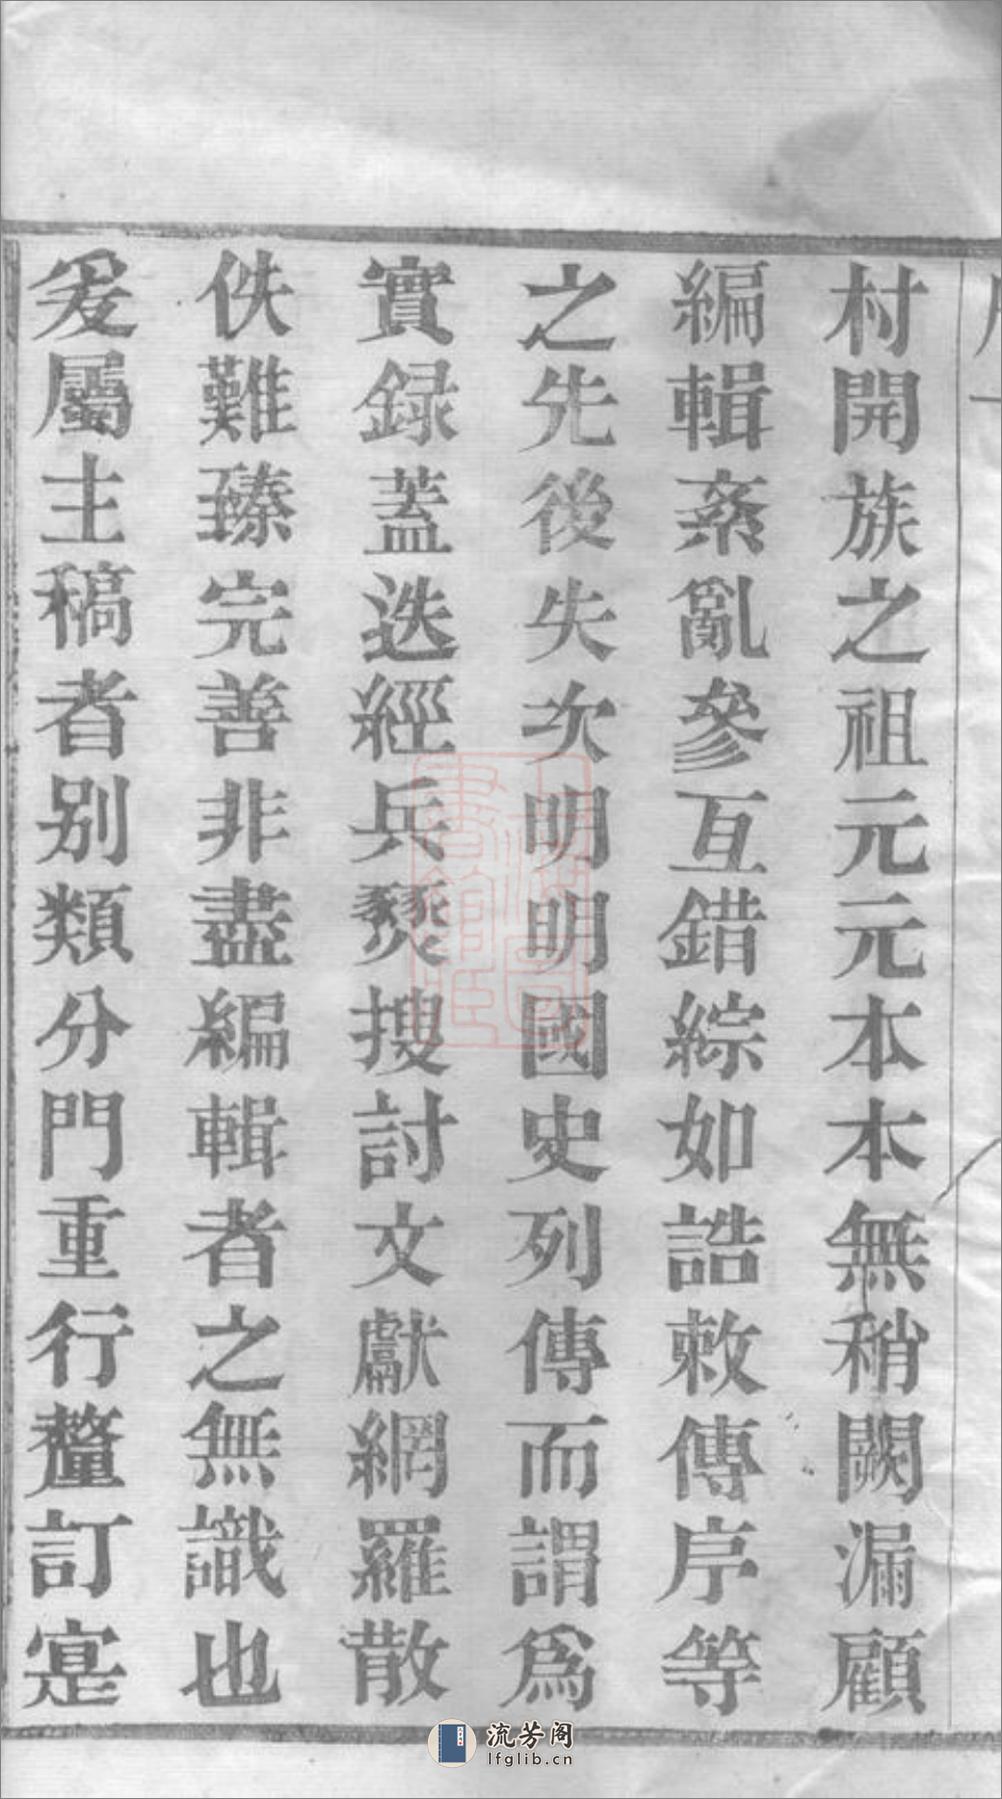 村開族之祖元元本本無稍闕漏顧
編輯紊亂參互錯綜如誥敕傳序等
之先後失次明明國史列傳而謂爲
實録蓋迭經兵燹搜討文獻網羅散
佚難臻完善非盡編輯者之無識也
爰屬主稿者别類分門重行釐訂寔
流芳阁
lfglib.cn